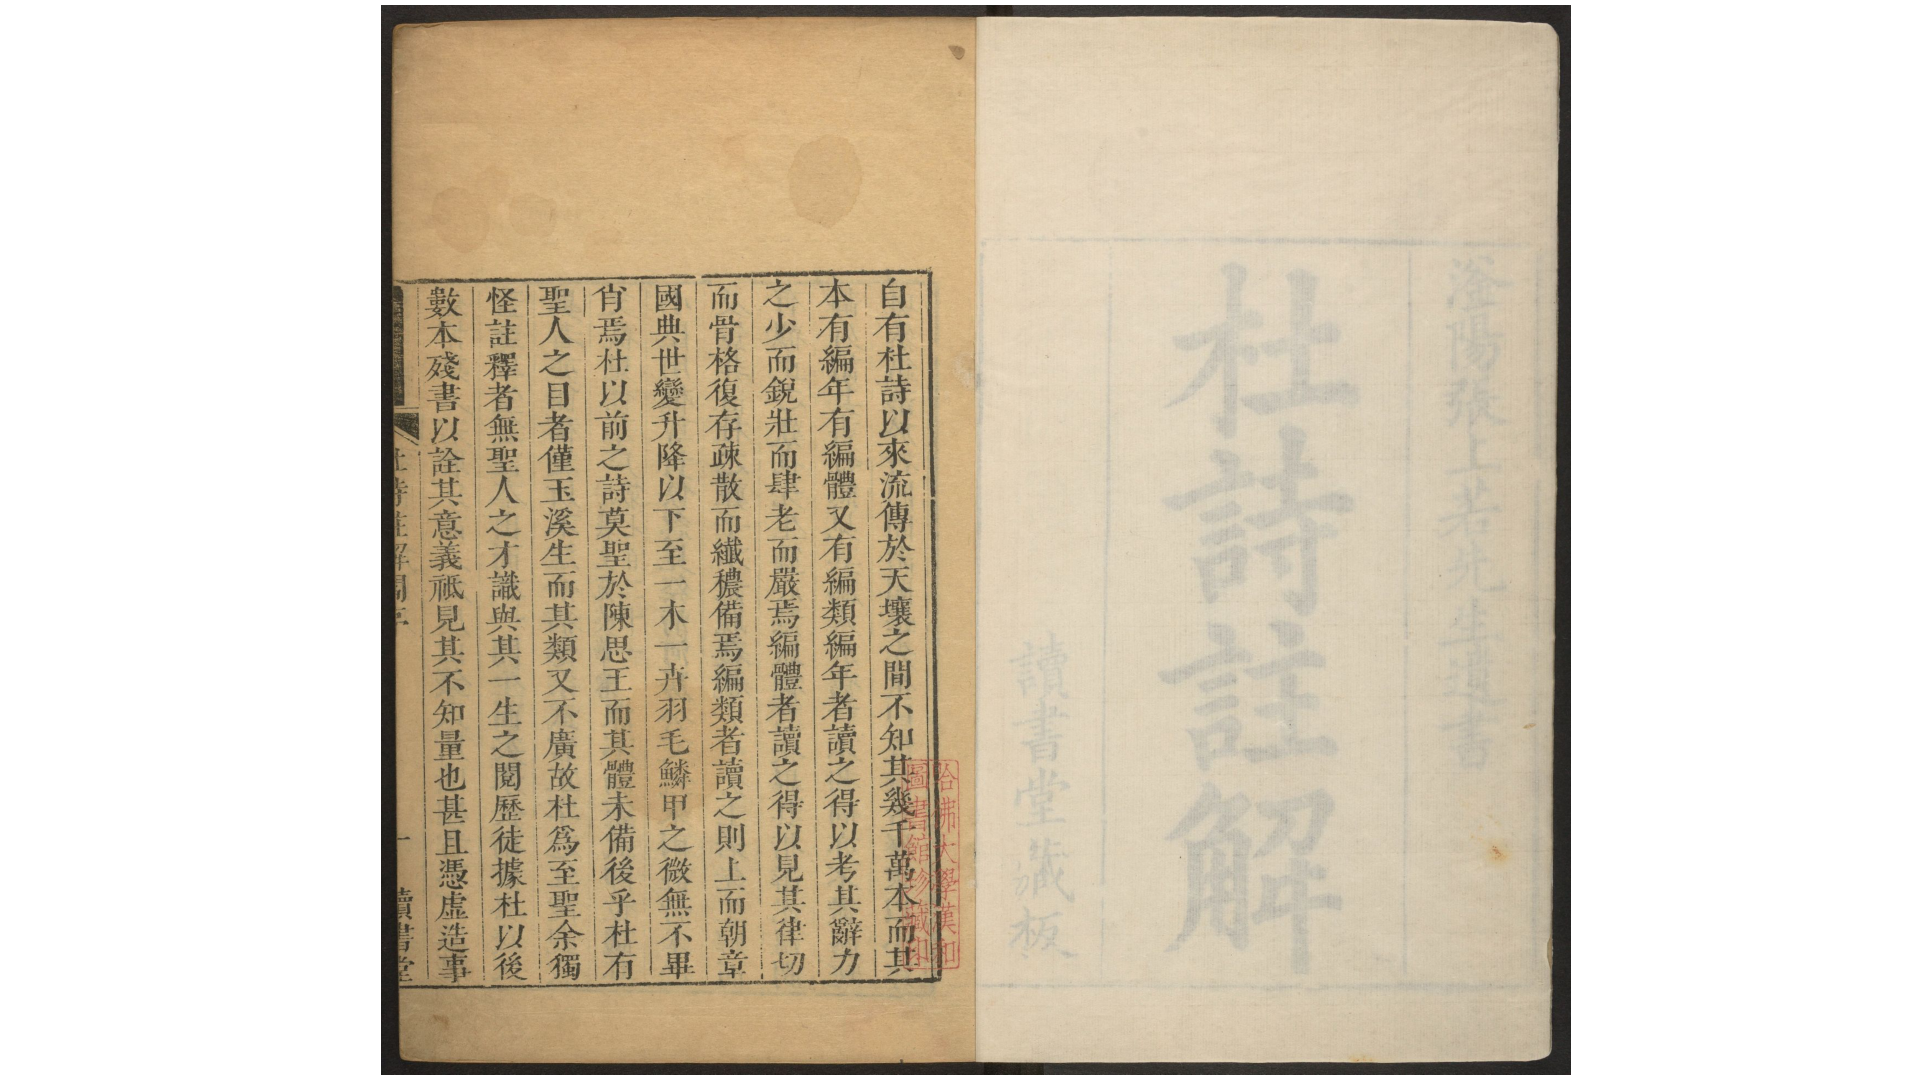 滏陽張上若先生遺書
杜詩註解
讀書堂藏板
自有杜詩以來流傳於天壤之間不知其幾千萬本而其
本有編年有編體又有編類編年者讀之得以考其辭力
之少而銳壯而肆老而嚴焉編體者讀之得以見其律切
而骨格復存疎散而纖穠備焉編類者讀之則上而朝章
國典世變升降以下至一木一卉羽毛鱗甲之微無不畢
肖焉杜以前之詩莫聖於陳思王而其體未備後乎杜有
聖人之目者僅玉溪生而其類又不廣故杜為至聖余獨
怪註釋者無聖人之才識與其一生之閱歷徒據杜以後
數本殘書以詮其意義祗見其不知量也甚且憑虛造事
杜詩註解閻序
一
讀書堂
哈佛大學漢和
圖書館珍藏印